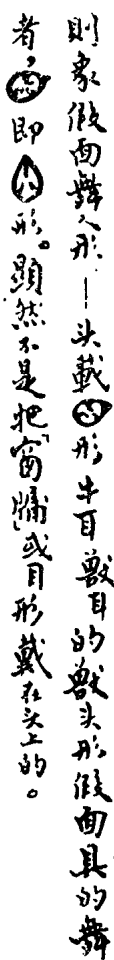 則象假面舞人形—头載形牛耳獸耳的獸头形假面具的舞
者，即形。顯然不是把“窗牖”或目形戴在头上的。